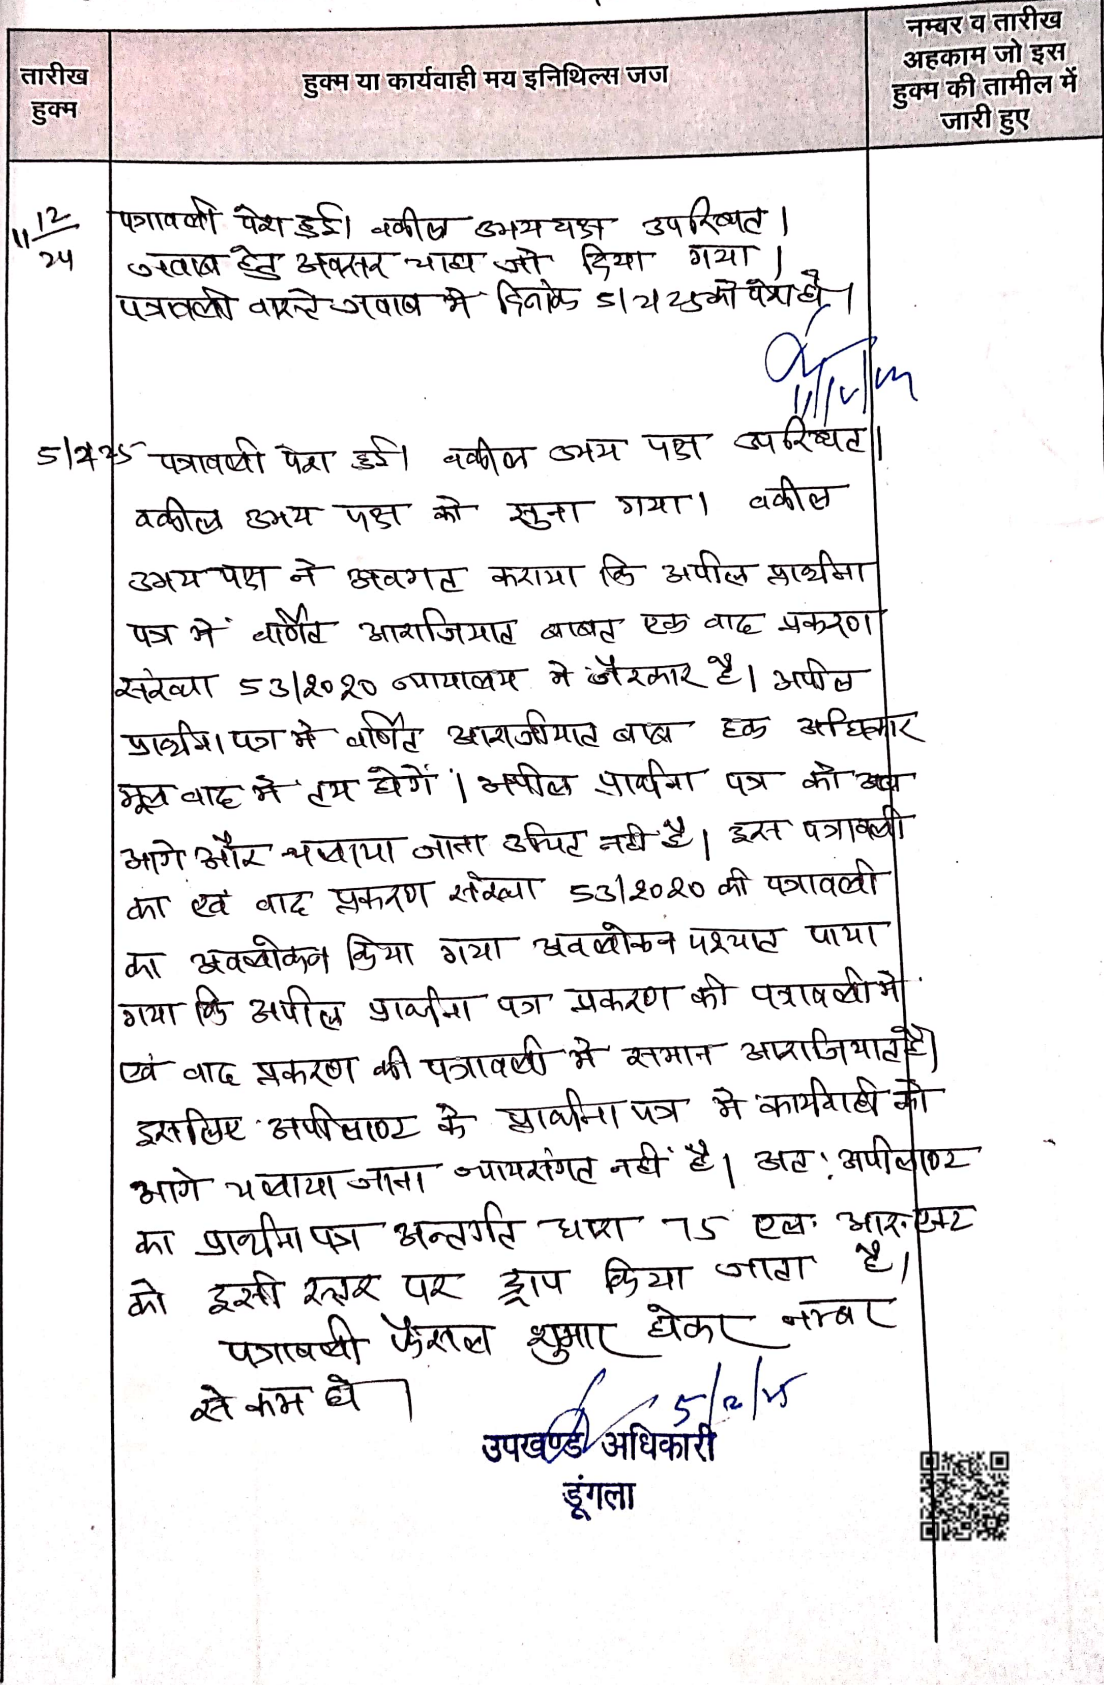 तारीख
हुक्म
हुक्म या कार्यवाही मय इनिथिल्स जज
नम्बर व तारीख
अहकाम जो इस
हुक्म की तामील में
जारी हुए
11/12/24
पत्रावली पेश हुई। वकील उभय पक्ष उपस्थित।
जवाब हेतु अवसर चाहा जो दिया गया।
पत्रावली वास्ते जवाब मे दिनांक 5/2/25 को पेश हो।
5/2/25 पत्रावली पेश हुई। वकील उभय पक्ष उपस्थित।
वकील उभय पक्ष को सुना गया। वकील
उभय पक्ष ने अवगत कराया कि अपील प्रार्थना
पत्र में वर्णित आराजियात बाबत एक वाद प्रकरण
संख्या 53/2020 न्यायालय मे जैरकार है। अपील
प्रार्थना पत्र मे वर्णित आराजीयात बाब हक अधिकार
मूल वाद मे तय होगें। अपील प्रार्थना पत्र को अब
आगे और चलाया जाना उचित नही है। इस पत्रावली
का एवं वाद प्रकरण संख्या 53/2020 की पत्रावली
का अवलोकन किया गया अवलोकन पश्चात पाया
गया कि अपील प्रार्थना पत्र प्रकरण की पत्रावली मे
एवं वाद प्रकरण की पत्रावली मे समान आराजियात है।
इसलिए अपीलाण्ट के प्रार्थना पत्र मे कार्यवाही को
आगे चलाया जाना न्यायसंगत नहीं है। अतः अपीलाण्ट
का प्रार्थना पत्र अन्तर्गत धारा 75 एल. आर. एक्ट
को इसी स्तर पर ड्राप किया जाता है।
पत्रावली फैसल शुमार होकर नम्बर
से कम हो।
5/2/25
उपखण्ड अधिकारी
डूंगला